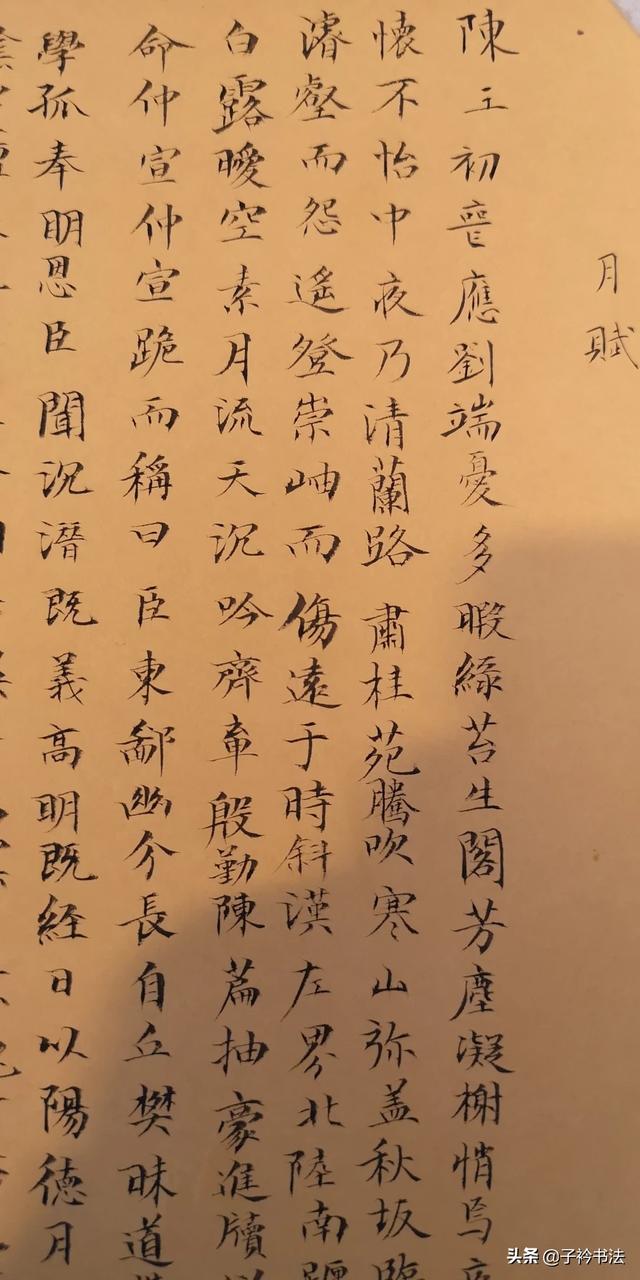 月賦
陳王初喪應劉端憂多暇緑苔生閣芳塵凝榭悄焉
懐不怡中夜乃清蘭路肅桂苑騰吹寒山弥盖秋坂臨
濬壑而怨遙登崇岫而傷遠于時斜漢左界北陸南躔
白露曖空素月流天沉吟齊章殷勤陳篇抽豪進牘
命仲宣仲宣跪而稱曰臣東鄙幽介長自丘樊昧道
學孤奉明恩臣聞沉潛既義高明既経日以陽德月
头条 @子衿书法